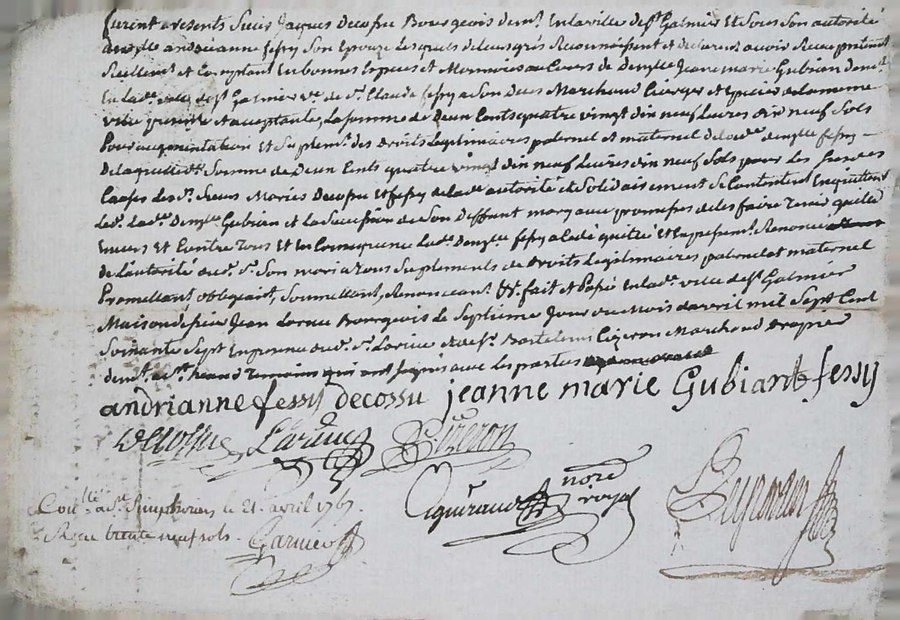 furent presents Sieur Jacques Decossu Bourgeois demt. En la ville de St. Galmier Et Sous Son autorité
andrianne fessy Son Epouze Lesquels de leurs grés Reconnaissent et declarent avoir Recu presentemt
Reellemt. et Comptant En bonnes Especes et Monnoies au Cours de Demlle Jeanne marie Gubian demt.
En lade. ville de St Galmier ve. de Sr. Claude fessy a Son deces Marchand Cierger et Epicier de la meme
ville presente et acceptante, La somme de Deux Cents quatre vingt dix neuf Livres dix neuf Sols
pour augmentation et Suplemt. des droits Legitimaires paternel et maternel de lade. demlle fessy
De laquelle Somme de Deux Cents quatre vingt dix neuf Livres dix neuf Sols pour les Susdes
Causes les Srs. Mariés Decossu et fessy de lade autorité et Solidairement Se Contentent En quittent
lade. Demlle. Gubian et la Succession de Son Deffunt mary avec promesses de les faire Tenir quitte
Envers Et Contre Tous Et En Consequence lade. demlle fessy a lade quitté Et Expressemt. Renoncé
de L'autorité dud. Sr. Son mari a Tous Suplements de droits Legitimaires paternel et maternel
Promettant, obligeant, Soumettant, Renonceant &c. fait et Passé En lade. ville de St Galmier
Maison de Sieur Jean Larue Bourgeois Le Septieme Jour du Mois d'avril mil Sept Cent
Soixante Sept En presence dud. Sr. Larue et de Sr. Bartelemi Cizeron Marchand Drapier
demt. aud. St. Temoins qui ont Signés avec les parties
andrianne fessy decossu jeanne marie Gubiant fessy
Decossu Larue Cizeron
nore
royal
Conllé a St. Simphorien le 21. avril 1767.
Recu trente neuf sols.